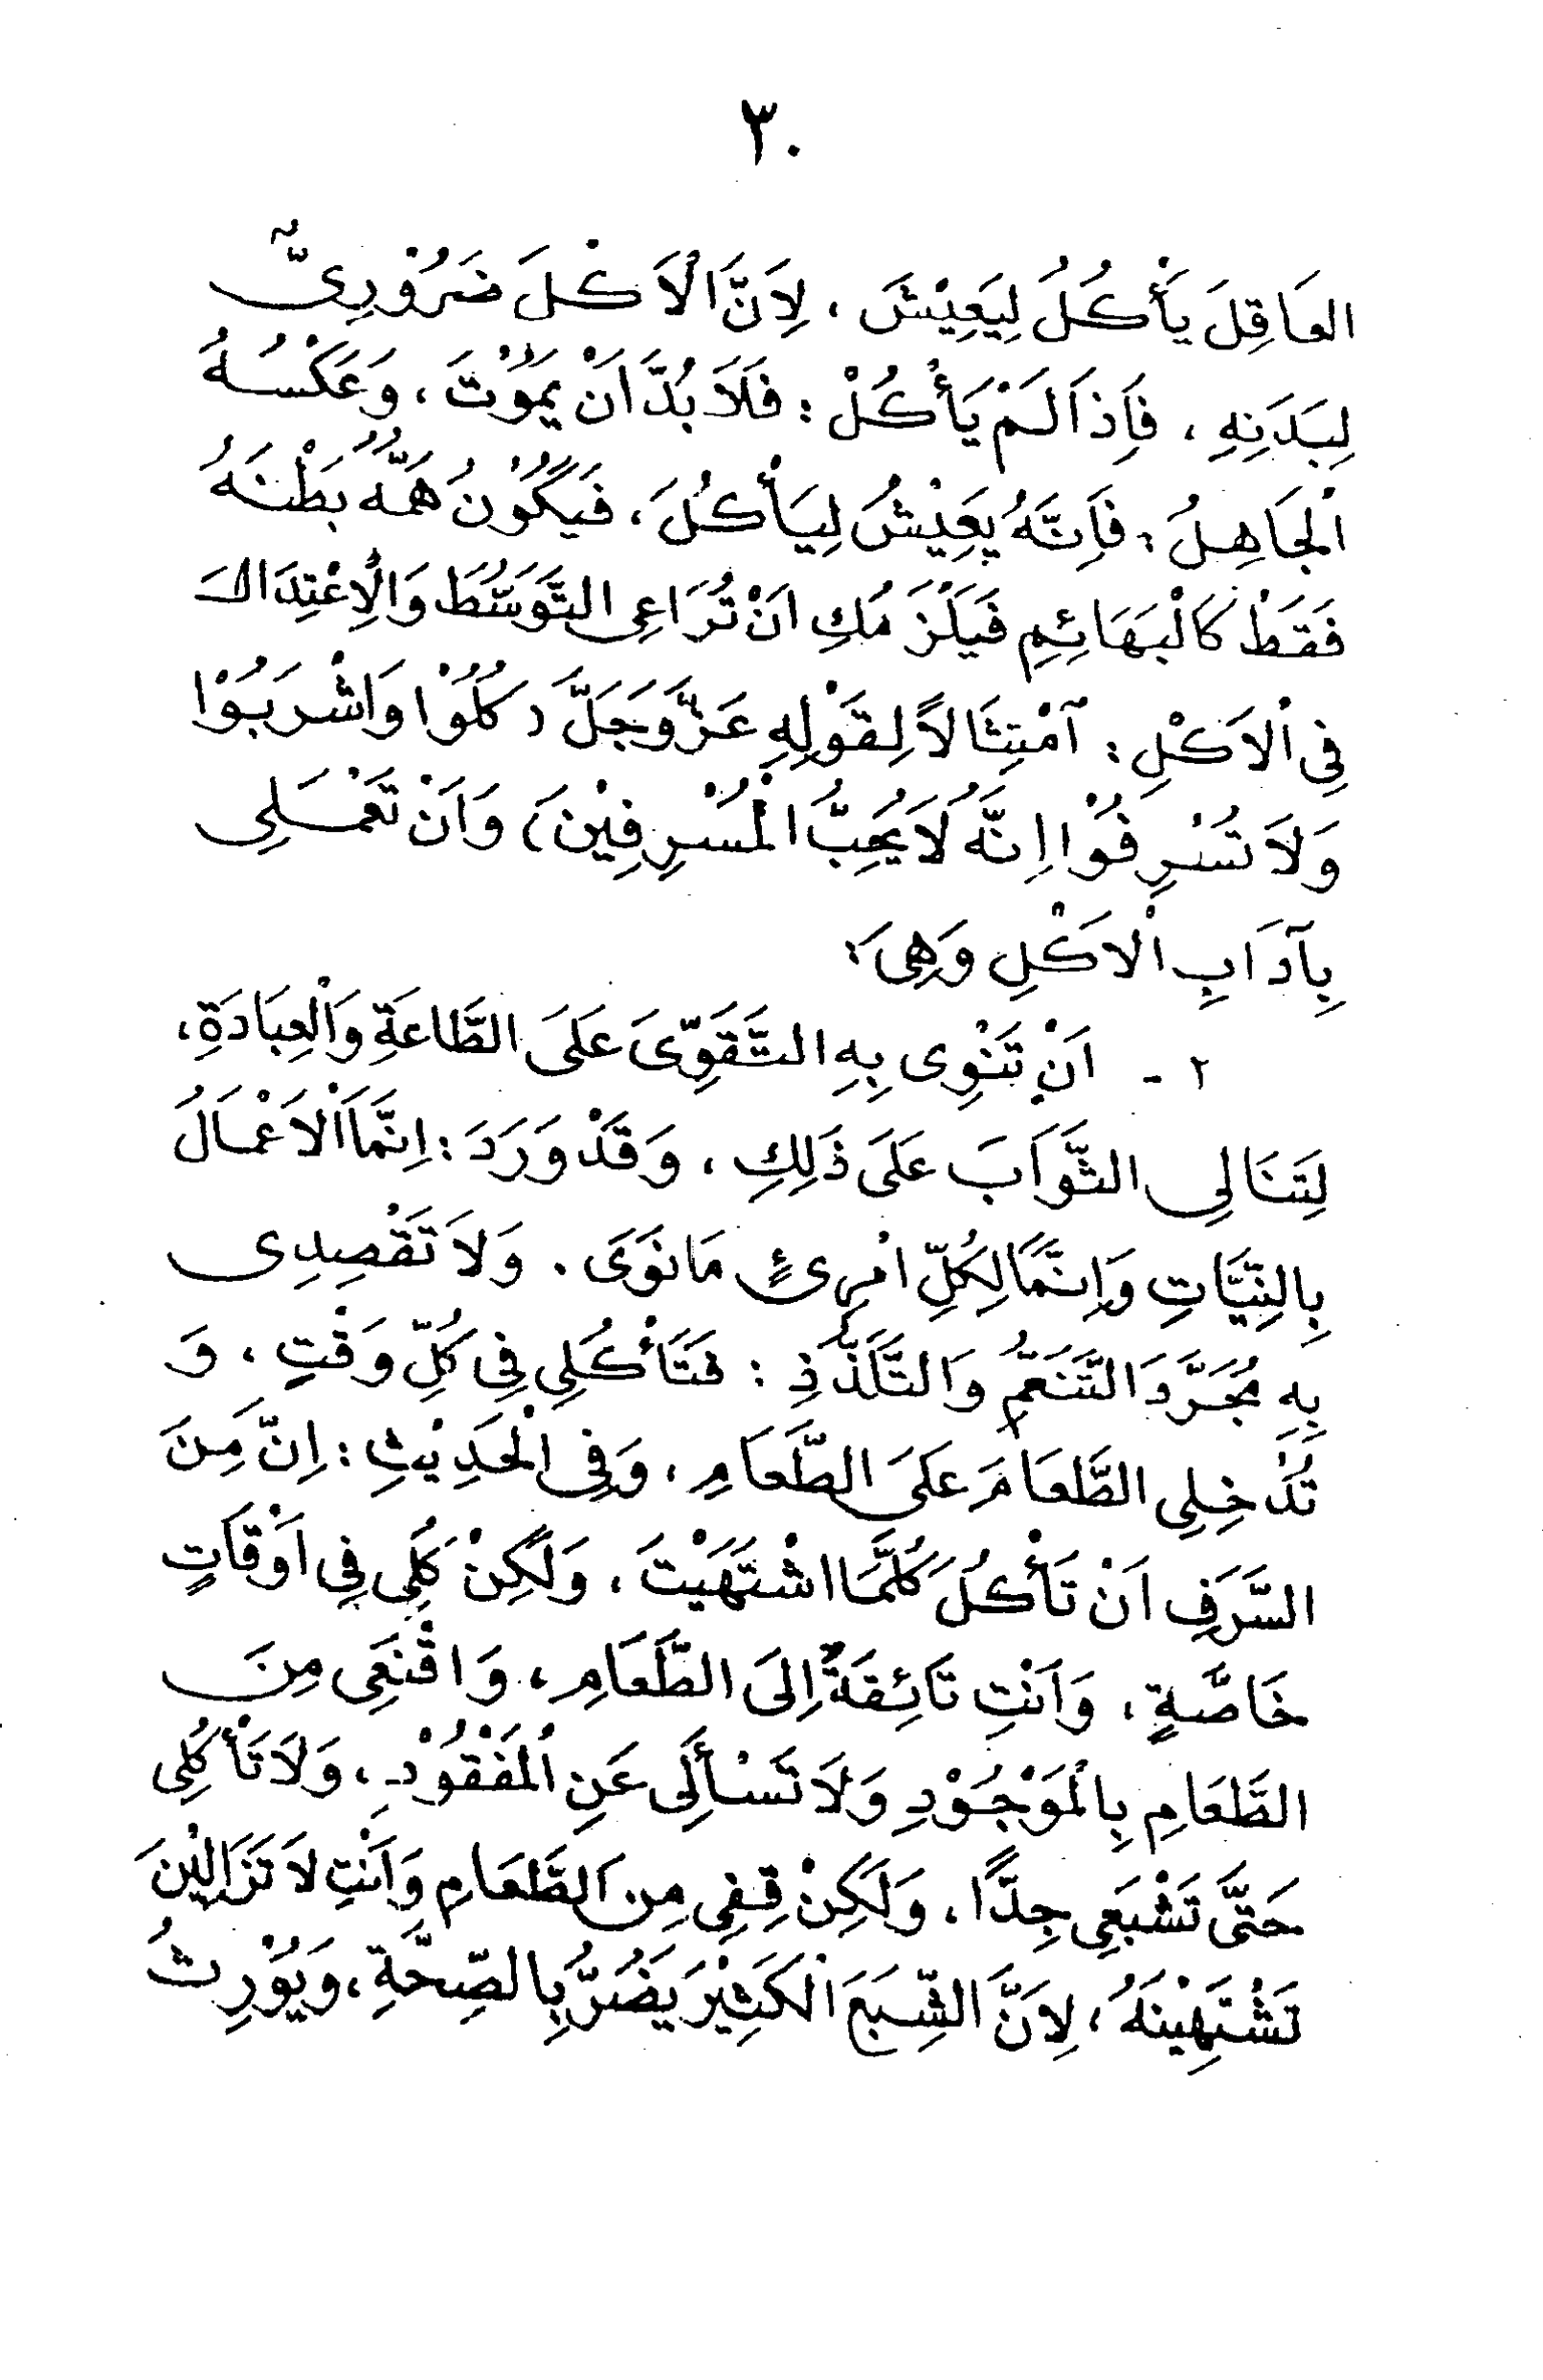 ٣٠
العَاقِلَ يَأْكُلُ لِيَعِيْشَ ، لِاَنَّ الْاَكْلَ ضَرُوْرِيٌّ
لِبَدَنِهِ ، فَاِذَا لَمْ يَأْكُلْ : فَلَا بُدَّ اَنْ يَمُوْتَ ، وَعَكْسُهُ
الْجَاهِلُ : فَاِنَّهُ يَعِيْشُ لِيَأْكُلَ ، فَيَكُوْنُ هَمُّهُ بَطْنَهُ
فَقَطْ كَالْبَهَائِمِ فَيَلْزَمُكِ اَنْ تُرَاعِى التَّوَسُّطَ وَالْاِعْتِدَالَ
فِى الْاَكْلِ : اَمْتِثَالًا لِقَوْلِهِ عَزَّ وَجَلَّ (كُلُوْا وَاشْرَبُوْا
وَلَا تُسْرِفُوْا اِنَّهُ لَا يُحِبُّ الْمُسْرِفِيْنَ) وَاَنْ تَعْمَلِى
بِآدَابِ الْاَكْلِ وَهِىَ :
٢ - اَنْ تَنْوِى بِهِ التَّقَوِّىَ عَلَى الطَّاعَةِ وَالْعِبَادَةِ ،
لِتَنَالِى الثَّوَابَ عَلَى ذَلِكِ ، وَقَدْ وَرَدَ : اِنَّمَا الْاَعْمَالُ
بِالنِّيَّاتِ وَاِنَّمَا لِكُلِّ امْرِئٍ مَا نَوَى . وَلَا تَقْصِدِى
بِهِ مُجَرَّدَ التَّنَعُّمِ وَالتَّلَذُّذِ : فَتَأْكُلِى فِى كُلِّ وَقْتٍ ، وَ
تُدْخِلِى الطَّعَامَ عَلَى الطَّعَامِ ، وَفِى الْحَدِيْثِ : اِنَّ مِنَ
السَّرَفِ اَنْ تَأْكُلَ كُلَّمَا اشْتَهَيْتَ ، وَلَكِنْ كُلِى فِى اَوْقَاتٍ
خَاصَّةٍ ، وَاَنْتِ تَائِقَةٌ اِلَى الطَّعَامِ ، وَاقْنَعِى مِنَ
الطَّعَامِ بِالْمَوْجُوْدِ وَلَا تَسْأَلِى عَنِ الْمَفْقُوْدِ ، وَلَا تَأْكُلِى
حَتَّى تَشْبَعِى جِدًّا ، وَلَكِنْ قِفِى مِنَ الطَّعَامِ وَاَنْتِ لَا تَزَالِيْنَ
تَشْتَهِيْنَهُ ، لِاَنَّ الشِّبَعَ الْكَثِيْرَ يَضُرُّ بِالصِّحَّةِ ، وَيُوْرِثُ